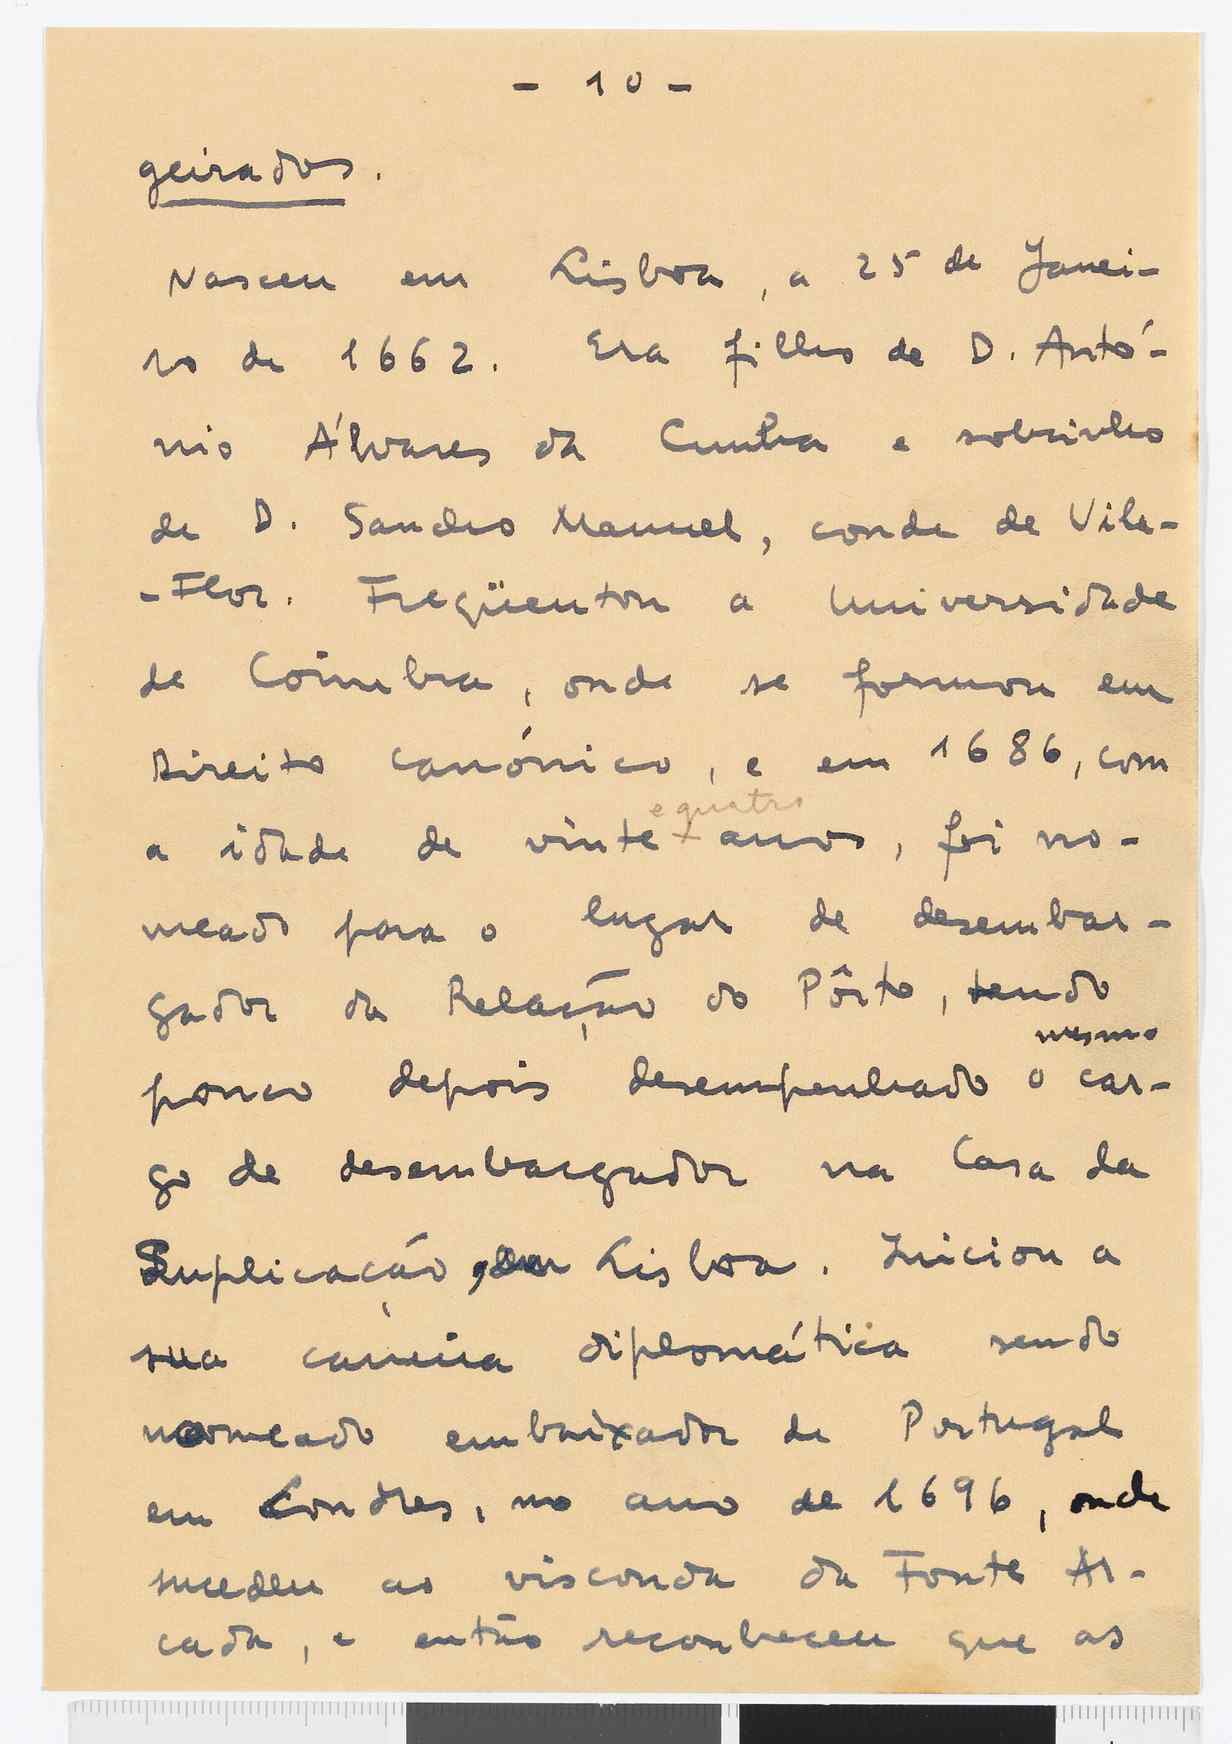 - 10 -
geirados.
Nasceu em Lisboa, a 25 de Janei-
ro de 1662. Era filho de D. Antó-
nio Álvares da Cunha e sobrinho
de D. Sancho Manuel, conde de Vila-
-Flor. Freqüentou a Universidade
de Coimbra, onde se formou em
Direito canónico, e em 1686, com
e quatro
a idade de vinte anos, foi no-
meado para o lugar de desembar-
gador da Relação do Pôrto, tendo
mesmo
pouco depois desempenhado o car-
go de desembargador na Casa da
Suplicação, em Lisboa. Iniciou a
sua carreira diplomática sendo
nomeado embaixador de Portugal
em Londres, no ano de 1696, onde
sucedeu ao visconde da Fonte Ar-
cada, e então reconheceu que as